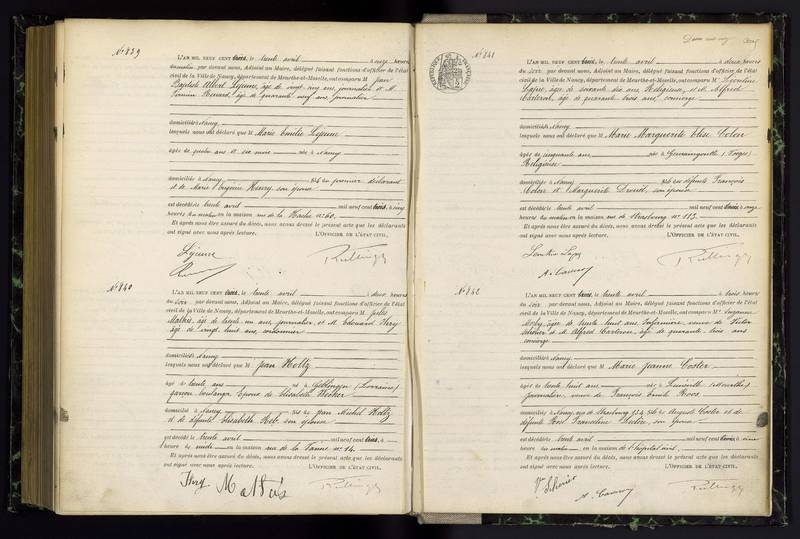 N° 839
L'AN MIL NEUF CENT trois, le trente avril à onze heures
du matin par devant nous, Adjoint au Maire, délégué faisant fonctions d'officier de l'état
civil de la Ville de Nancy, département de Meurthe-et-Moselle, ont comparu M Jean
Baptiste Albert Lejeune, âgé de vingt ans, journalier et M.
Firmin Renard, âgé de quarante neuf ans, journalier
domiciliés à Nancy
lesquels nous ont déclaré que M Marie Emilie Lejeune
âgée de quatre ans et six mois née à Nancy
domiciliée à Nancy fille du premier déclarant
et de Marie Eugénie Henry, son épouse
est décédée le trente avril mil neuf cent trois, à cinq
heures du matin en la maison rue de la Hache n° 60.
Et après nous être assuré du décès, nous avons dressé le présent acte que les déclarants
ont signé avec nous après lecture. L'OFFICIER DE L'ÉTAT CIVIL,
Lejeune
N° 840
L'AN MIL NEUF CENT trois, le trente avril à deux heures
du soir par devant nous, Adjoint au Maire, délégué faisant fonctions d'officier de l'état
civil de la Ville de Nancy, département de Meurthe-et-Moselle, ont comparu M Jules
Mathis, âgé de trente un ans, journalier, et M. Edouard Thiry
âgé de vingt huit ans, cordonnier
domiciliés à Nancy
lesquels nous ont déclaré que M Jean Holtz
âgé de trente ans né à (Lorraine)
garçon boulanger époux de Elisabeth
domicilié à Nancy fils de Jean Michel Holtz
et de défunte Elisabeth son épouse
est décédé le trente avril mil neuf cent trois, à
heure de midi en la maison rue de la n° 14.
Et après nous être assuré du décès, nous avons dressé le présent acte que les déclarants
ont signé avec nous après lecture. L'OFFICIER DE L'ÉTAT CIVIL,
Thiry Mathis
N° 841
L'AN MIL NEUF CENT trois, le trente avril à deux heures
du soir par devant nous, Adjoint au Maire, délégué faisant fonctions d'officier de l'état
civil de la Ville de Nancy, département de Meurthe-et-Moselle, ont comparu M Léontine
âgée de soixante dix ans, Religieuse, et M. Alfred
âgé de quarante trois ans, concierge
domiciliés à Nancy
lesquels nous ont déclaré que M Marie Marguerite Elise Colin
âgée de cinquante ans née à (Vosges)
Religieuse
domiciliée à Nancy fille de défunts François
Colin et Marguerite son épouse
est décédée le trente avril mil neuf cent trois à onze
heures du matin en la maison rue de Strasbourg n° 113.
Et après nous être assuré du décès, nous avons dressé le présent acte que les déclarants
ont signé avec nous après lecture. L'OFFICIER DE L'ÉTAT CIVIL,
N° 842
L'AN MIL NEUF CENT trois, le trente avril à trois heures
du soir par devant nous, Adjoint au Maire, délégué faisant fonctions d'officier de l'état
civil de la Ville de Nancy, département de Meurthe-et-Moselle, ont comparu M Suzanne
âgée de trente huit ans, infirmière, veuve de Victor
et M. Alfred âgé de quarante trois ans
concierge
domiciliés à Nancy
lesquels nous ont déclaré que M Marie Jeanne Coster
âgée de trente huit ans née à Lunéville (Meurthe)
journalière, veuve de François Emile Roos
domiciliée à Nancy, rue de Strasbourg fille de Auguste Coster et de
défunte son épouse
est décédée le trente avril mil neuf cent trois à une
heure du matin en la maison de l'hôpital civil.
Et après nous être assuré du décès, nous avons dressé le présent acte que les déclarants
ont signé avec nous après lecture. L'OFFICIER DE L'ÉTAT CIVIL,